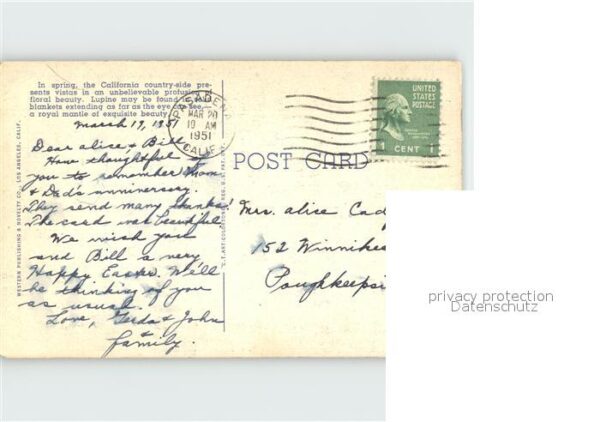 In spring, the California country-side pre-
sents vistas in an unbelievable profusion of
floral beauty. Lupine may be found in
blankets extending as far as the eye can see,—
a royal mantle of exquisite beauty.
March 19, 1951
Dear Alice & Bill,
How thoughtful of
you to remember Mom
& Dad's anniversary.
They send many thanks!
The card was beautiful.
We wish you
and Bill a very
Happy Easter. We'll
be thinking of you
as usual.
Love, Gerda & John
& family.
WESTERN PUBLISHING & NOVELTY CO., LOS ANGELES, CALIF.
MAR 20
10 AM
1951
CALIF.
POST CARD
UNITED
STATES
POSTAGE
1 CENT 1
Mrs. Alice Cad
152 Winnike
Poughkeepsi
privacy protection
Datenschutz